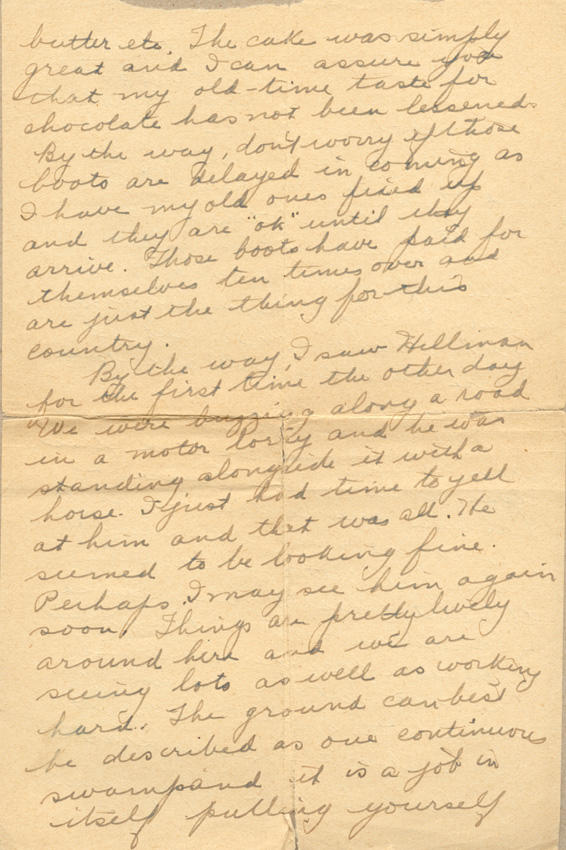 butter etc. The cake was simply
great and I can assure you
that my old-time taste for
chocolate has not been lessened.
By the way, don't worry if those
boots are delayed in coming as
I have my old ones fixed up
and they are "ok" until they
arrive. Those boots have paid for
themselves ten times over and
are just the thing for this
country.
By the way, I saw Hellinan
for the first time the other day
We were buzzing along a road
in a motor lorry and he was
standing alongside it with a
horse. I just had time to yell
at him and that was all. He
seemed to be looking fine.
Perhaps I may see him again
soon. Things are pretty lively
around here and we are
seeing lots as well as working
hard. The ground can best
be described as one continuous
swamp and it is a job in
itself pulling yourself